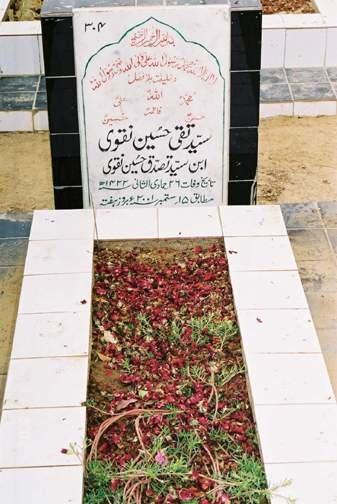 ۳۰۴
بسم اللہ الرحمن الرحیم
لا الہ الا اللہ محمد رسول اللہ علی ولی اللہ وصی رسول اللہ
و خلیفتہ بلا فصل
اللہ
محمد علی
فاطمہ
حسن حسین
سیّد تقی حسین نقوی
ابن سیّد تصدق حسین نقوی
تاریخ وفات ۲۶ جمادی الثانی ۱۴۲۲ھ
مطابق ۱۵ ستمبر ۲۰۰۱ء بروز ہفتہ